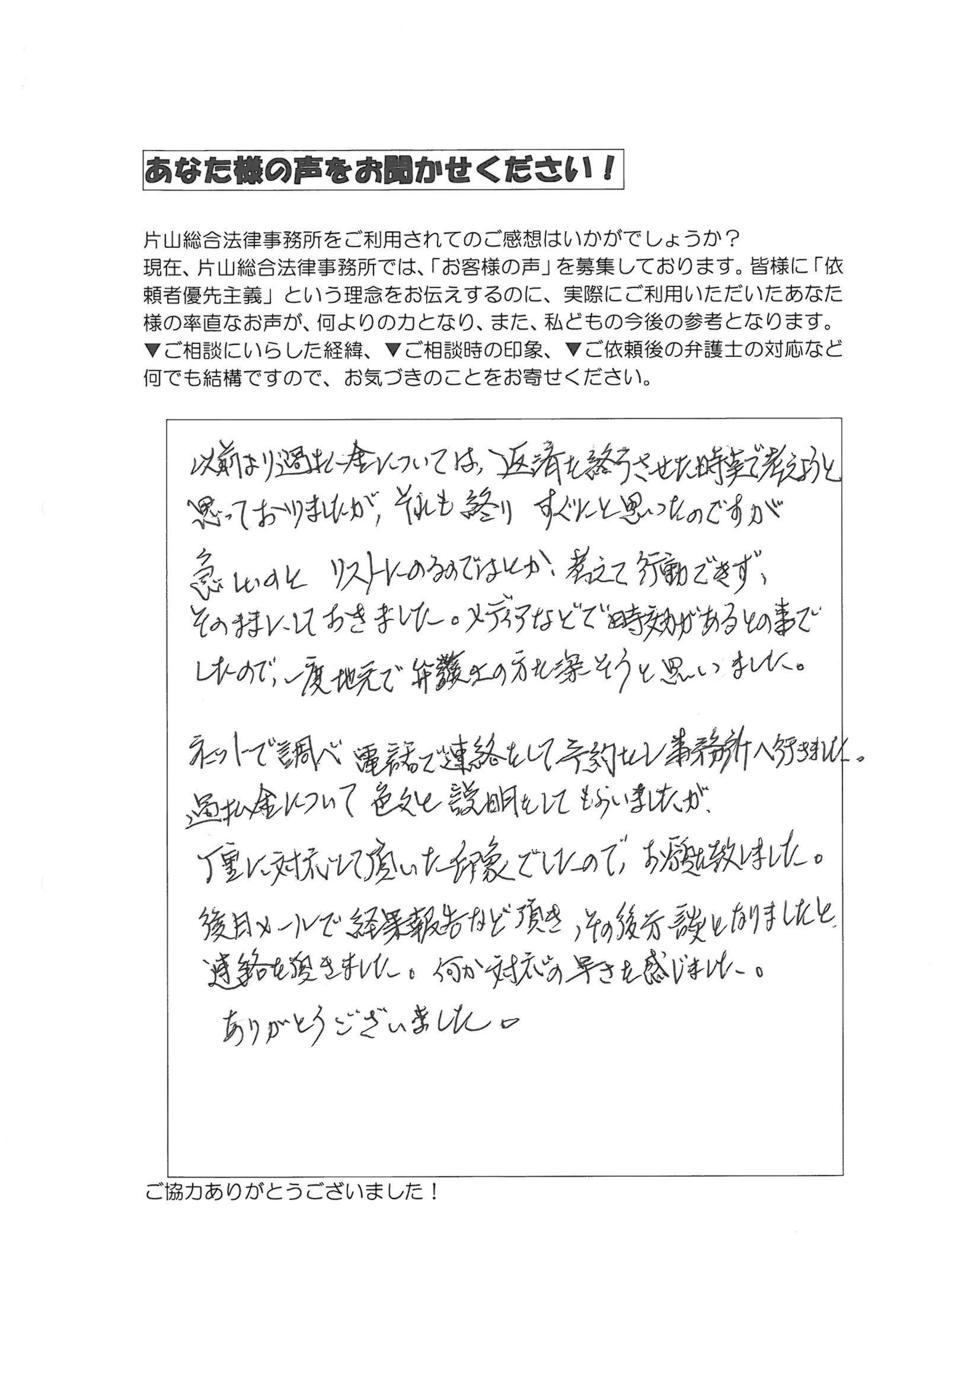 あなた様の声をお聞かせください！
片山総合法律事務所をご利用されてのご感想はいかがでしょうか？
現在、片山総合法律事務所では、「お客様の声」を募集しております。皆様に「依
頼者優先主義」という理念をお伝えするのに、実際にご利用いただいたあなた
様の率直なお声が、何よりの力となり、また、私どもの今後の参考となります。
▼ご相談にいらした経緯、▼ご相談時の印象、▼ご依頼後の弁護士の対応など
何でも結構ですので、お気づきのことをお寄せください。
以前より過払い金については、返済を終らさせた時等で考えようと
思っておりましたが、それも終り すぐにと思ったのですが
忽しいのと リストにのるのではとか、考えて行動できず、
そのままにしておきました。メディアなどで時効があるとの事で
したので、一度地元で弁護士の方を探そうと思いました。
ネットで調べ 電話で連絡をして予約をし事務所へ行きました。
過払い金について 色々と説明をしてもらいましたが、
丁重に対応して頂いた印象でしたので、お願い致しました。
後日メールで経果報告など頂き、その後示談となりましたと、
連絡を頂きました。何か対応の早さを感じました。
ありがとうございました。
ご協力ありがとうございました！